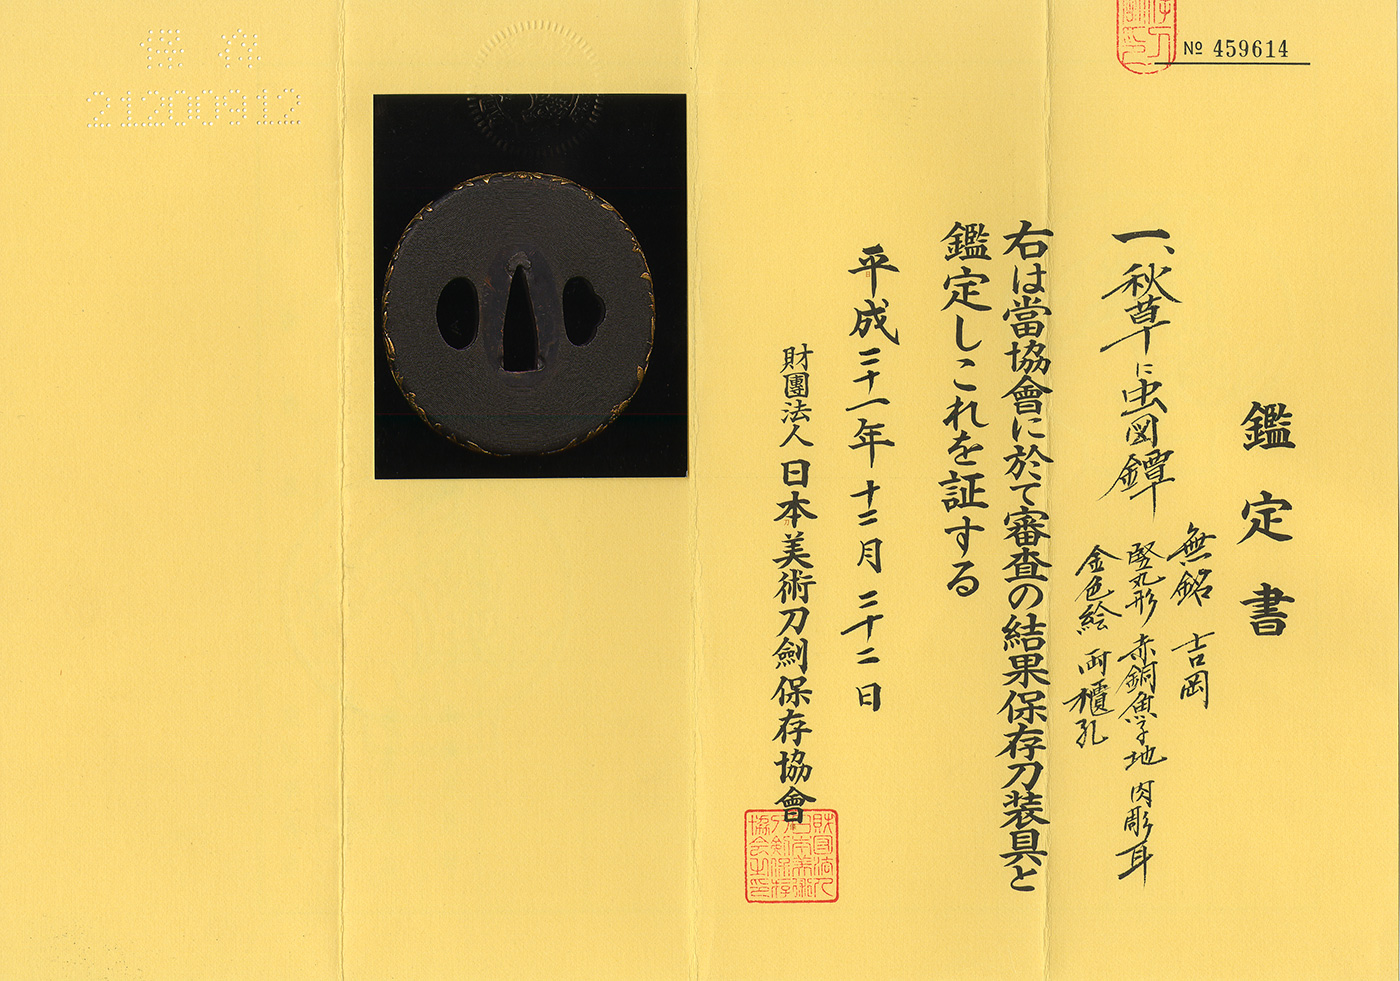 № 459614
鑑定書
一、秋草に虫図鐔
無銘 吉岡
竪丸形 赤銅魚子地 肉彫耳
金色絵 両櫃孔
右は當協會に於て審査の結果保存刀装具と
鑑定しこれを証する
平成二十一年 十二月 二十二日
財團法人 日本美術刀劍保存協會
保存
21200912